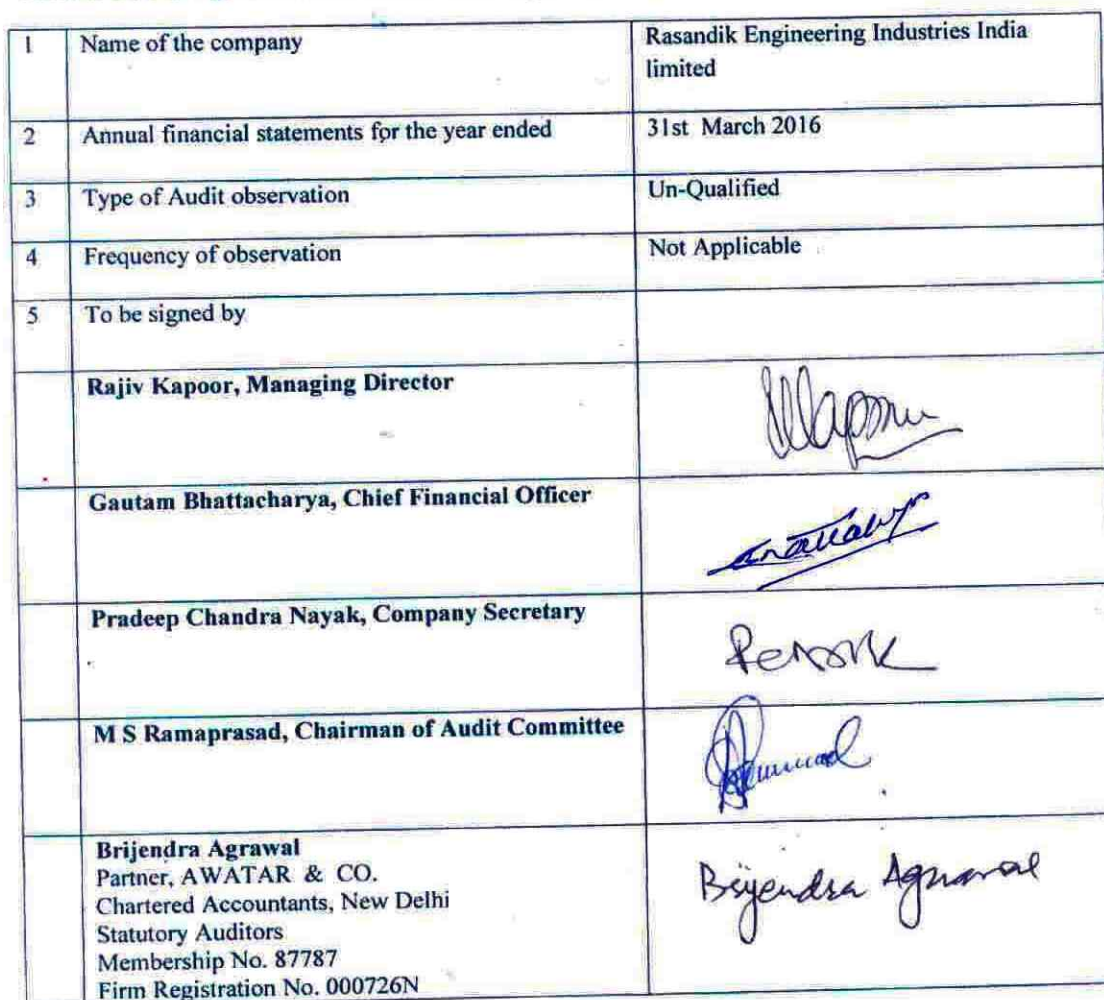 1 Name of the company Rasandik Engineering Industries India
limited
2 Annual financial statements for the year ended 31st March 2016
3 Type of Audit observation Un-Qualified
4 Frequency of observation Not Applicable
5 To be signed by
Rajiv Kapoor, Managing Director
Gautam Bhattacharya, Chief Financial Officer
Pradeep Chandra Nayak, Company Secretary
M S Ramaprasad, Chairman of Audit Committee
Brijendra Agrawal
Partner, AWATAR & CO.
Chartered Accountants, New Delhi
Statutory Auditors
Membership No. 87787
Firm Registration No. 000726N
Brijendra Agrawal